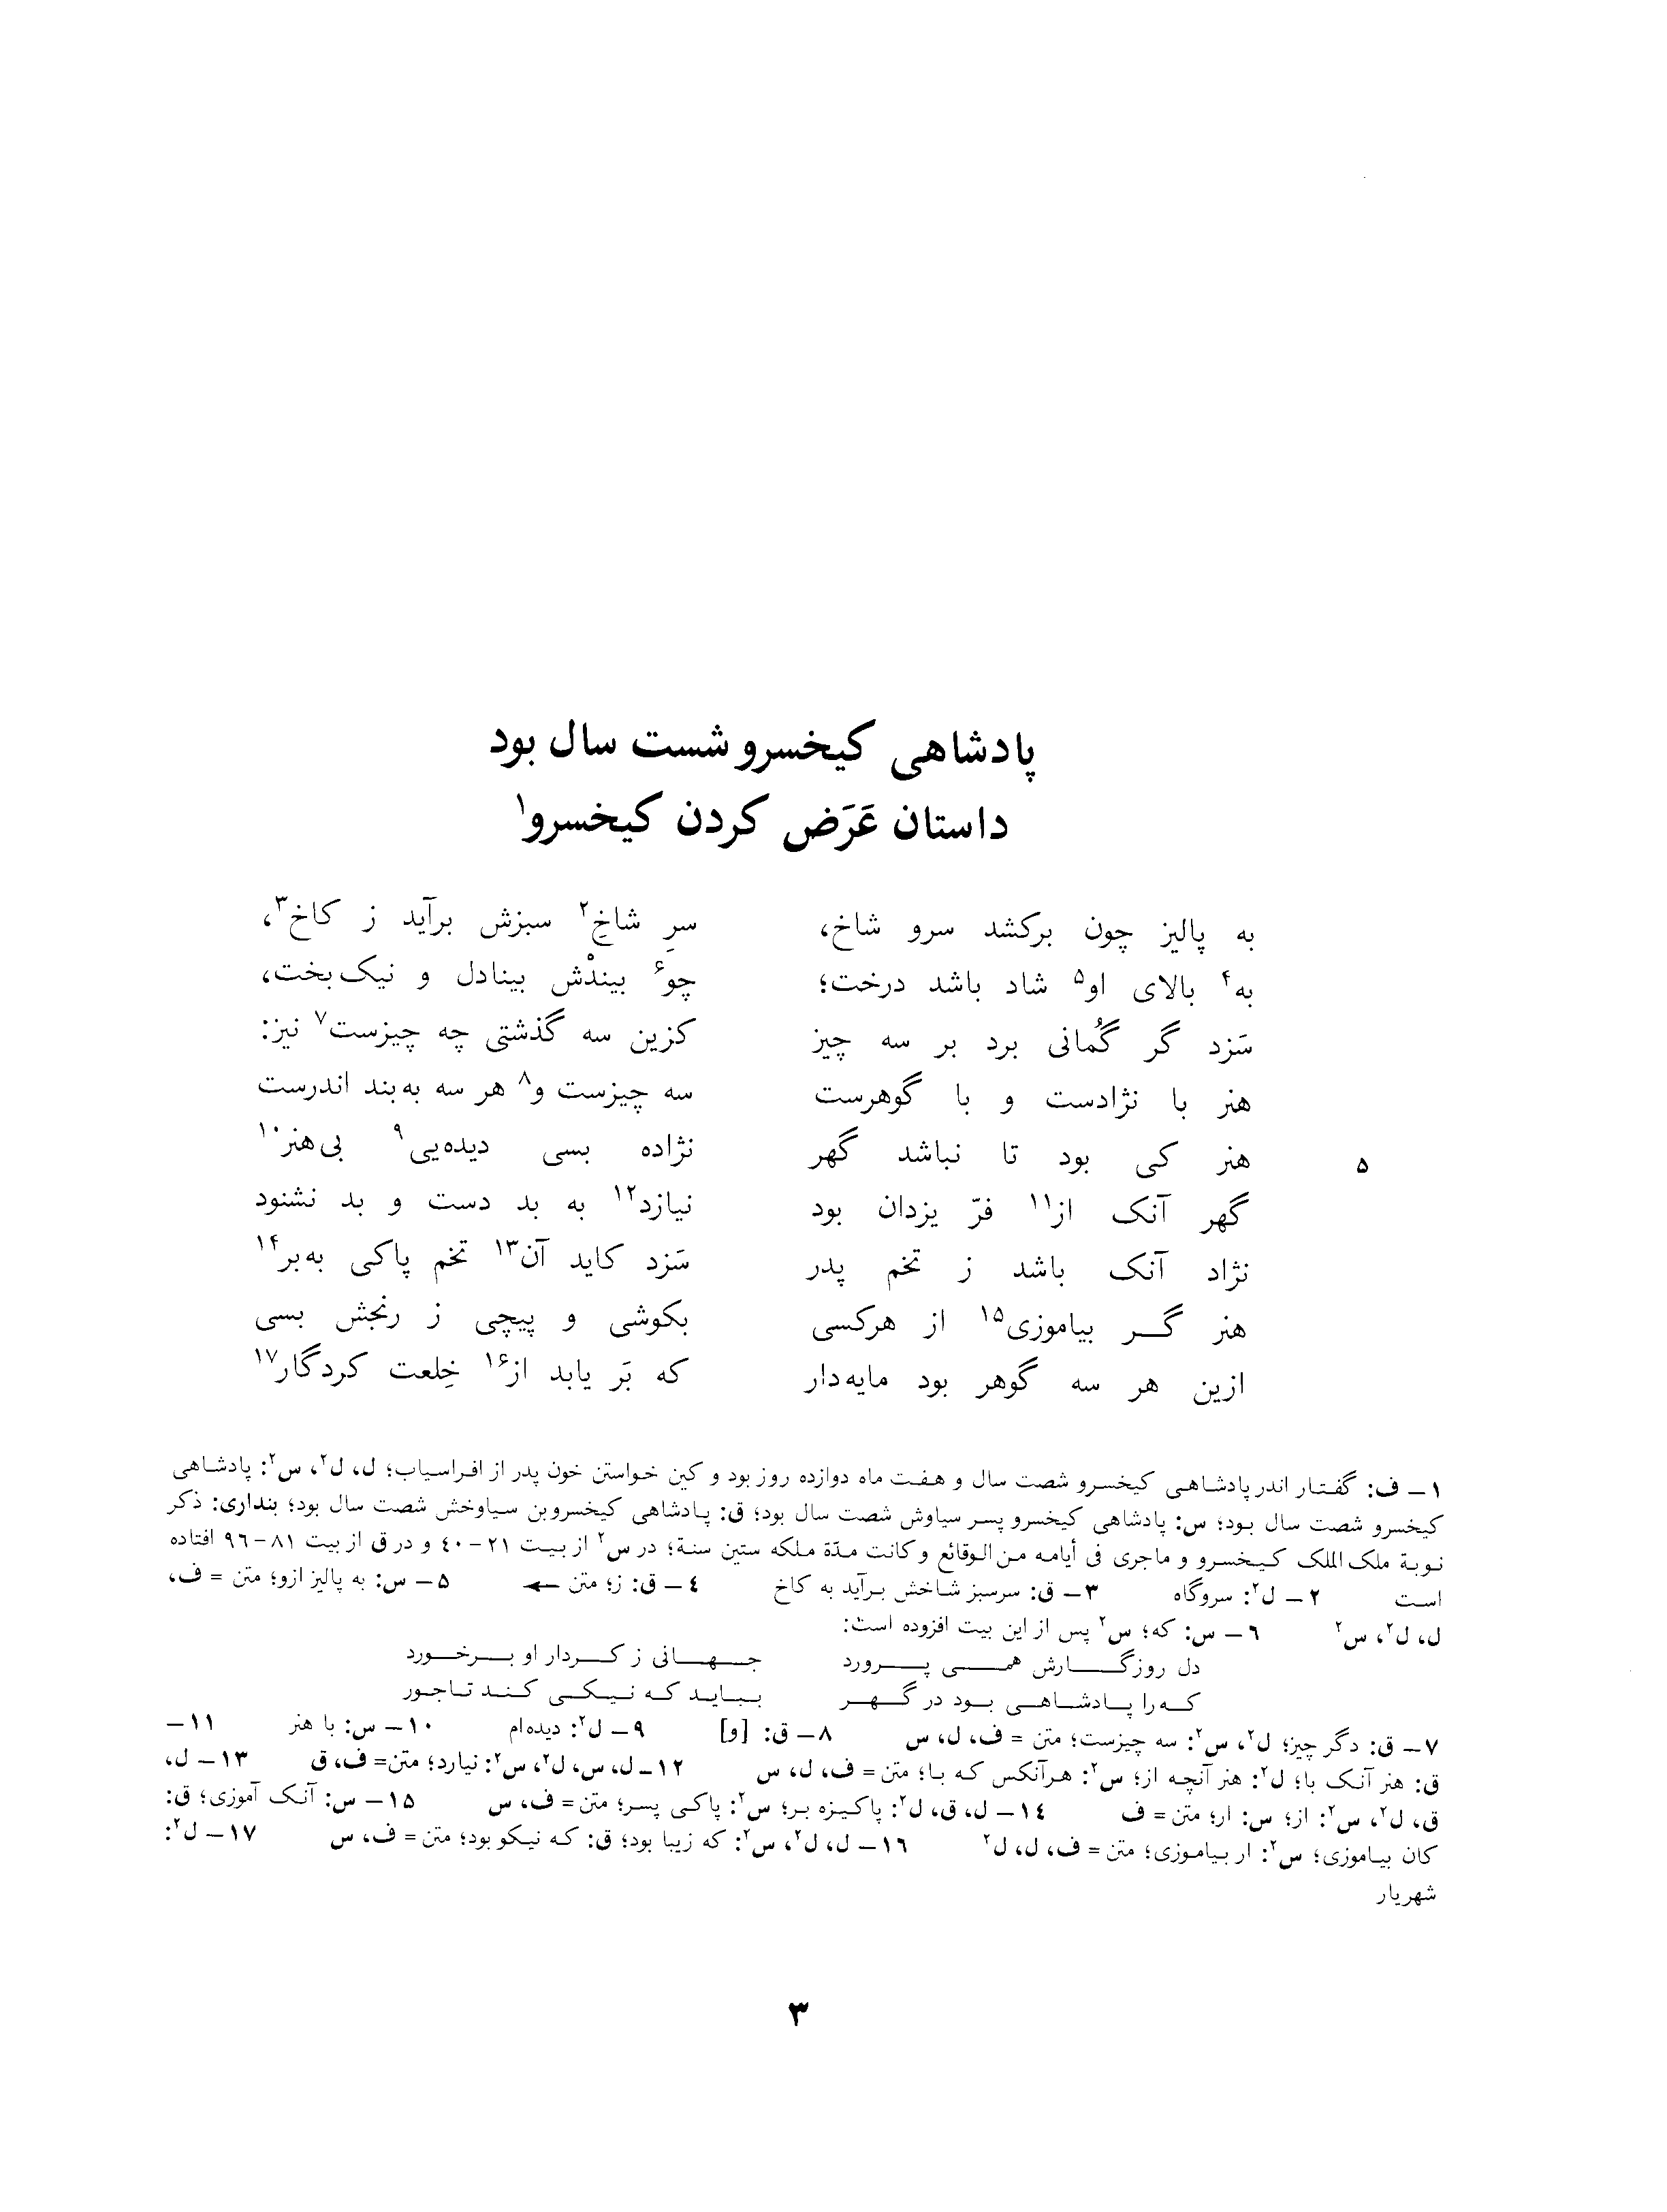 پادشاهی کیخسرو شست سال بود
داستان عَرَض کردن کیخسرو۱
به پالیز چون برکشد سرو شاخ، سرِ شاخِ۲ سبزش برآید ز کاخ۳،
به۴ بالای او۵ شاد باشد درخت؛ چو۶ بیندْش بینادل و نیک‌بخت،
سَزد گر گُمانی برد بر سه چیز کزین سه گذشتی چه چیزست۷ نیز:
هنر با نژادست و با گوهرست سه چیزست و۸ هر سه به‌بند اندرست
۵ هنر کی بود تا نباشد گهر نژاده بسی دیده‌یی۹ بی‌هنر۱۰
گهر آنک از۱۱ فرّ یزدان بود نیازد۱۲ به بد دست و بد نشنود
نژاد آنک باشد ز تخم پدر سَزد کاید آن۱۳ تخم پاکی به‌بر۱۴
هنر گر بیاموزی۱۵ از هرکسی بکوشی و پیچی ز رنجش بسی
ازین هر سه گوهر بود مایه‌دار که بَر یابد از۱۶ خِلعت کردگار۱۷
۱ــ ف: گفتار اندر پادشاهی کیخسرو شصت سال و هفت ماه دوازده روز بود و کین خواستن خون پدر از افراسیاب؛ ل، ل۲، س۲: پادشاهی
کیخسرو شصت سال بود؛ س: پادشاهی کیخسرو پسر سیاوش شصت سال بود؛ ق: پادشاهی کیخسروبن سیاوخش شصت سال بود؛ بنداری: ذکر
نوبة ملک الملک کیخسرو و ماجری فی أیامه من الوقائع وکانت مدّة ملکه ستین سنة؛ در س۲ از بیت ۲۱-۴۰ و در ق از بیت ۸۱-۹۶ افتاده
است ۲ــ ل۲: سروگاه ۳ــ ق: سرسبز شاخش برآید به کاخ ۴ــ ق: ز؛ متن ← ۵ــ س: به پالیز ازو؛ متن = ف،
ل، ل۲، س۲ ۶ــ س: که؛ س۲ پس از این بیت افزوده است:
دل روزگارش همی پرورد جهانی ز کردار او برخورد
که را پادشاهی بود در گهر بباید که نیکی کند تاجور
۷ــ ق: دگر چیز؛ ل۲، س۲: سه چیزست؛ متن = ف، ل، س ۸ــ ق: [و] ۹ــ ل۲: دیده‌ام ۱۰ــ س: با هنر ۱۱ــ
ق: هنر آنک با؛ ل۲: هنر آنچه از؛ س۲: هرآنکس که با؛ متن = ف، ل، س ۱۲ــ ل، س، ل۲، س۲: نیارد؛ متن= ف، ق ۱۳ــ ل،
ق، ل۲، س۲: از؛ س: ار؛ متن = ف ۱۴ــ ل، ق، ل۲: پاکیزه بر؛ س۲: پاکی پسر؛ متن = ف، س ۱۵ــ س: آنک آموزی؛ ق:
کان بیاموزی؛ س۲: ار بیاموزی؛ متن = ف، ل، ل۲ ۱۶ــ ل، ل۲، س۲: که زیبا بود؛ ق: که نیکو بود؛ متن = ف، س ۱۷ــ ل۲:
شهریار
۳